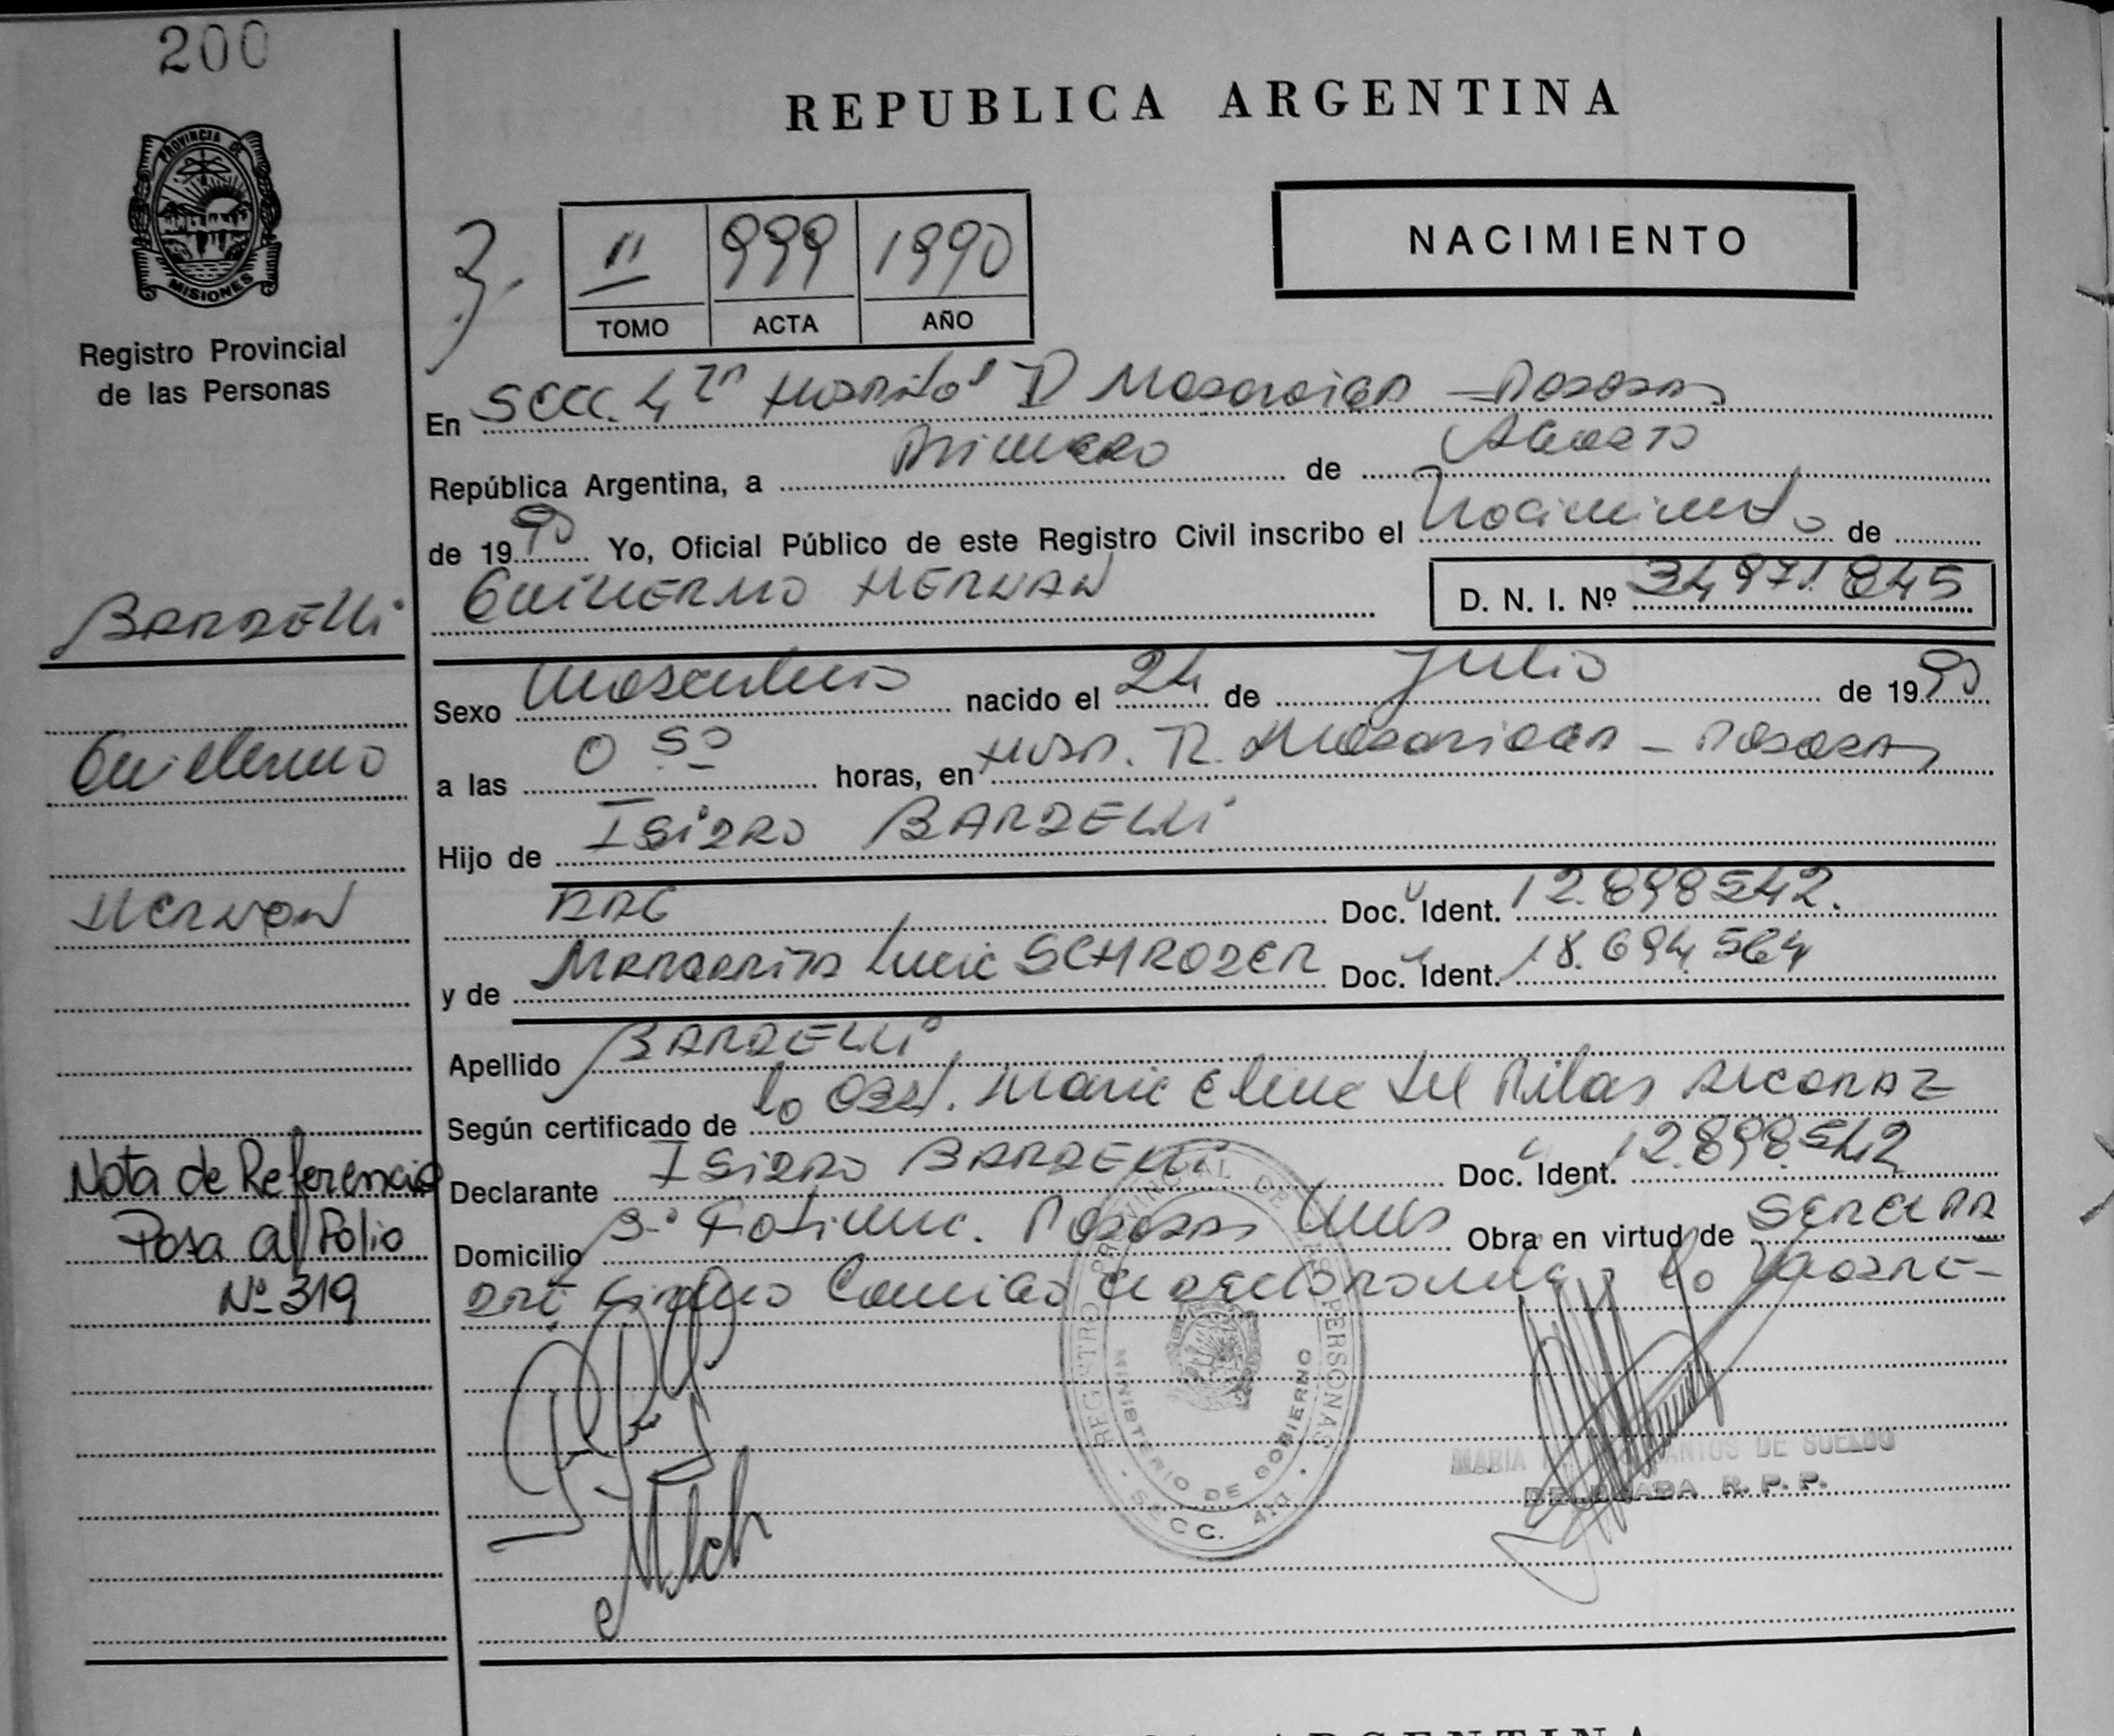 200
REPUBLICA ARGENTINA
PROVINCIA DE
MISIONES
Registro Provincial
de las Personas
II 999 1990
TOMO ACTA AÑO
NACIMIENTO
En Secc. 4ta Hospital R Madariaga - Posadas
República Argentina, a Primero de Agosto
de 1990 Yo, Oficial Público de este Registro Civil inscribo el Nacimiento de
GUILLERMO HERNAN D. N. I. Nº 34971.845
BARDELLI
Sexo Masculino nacido el 24 de Julio de 1990
Guillermo
a las 0 50 horas, en Hosp. R. Madariaga - Posadas
Hijo de ISIDRO BARDELLI
Hernan
ARG Doc. Ident. 12.898542.
y de Margarita Lucia SCHRODER Doc. Ident. 18.694.564
Apellido BARDELLI
Según certificado de la Obst. Maria Elena del Pilar
Declarante ISIDRO BARDELLI Doc. Ident. 12.898542
Domicilio Bº Fatima. Posadas Mnes Obra en virtud de
Nota de Referencia
Pasa al Folio
Nº 319
REGISTRO PROVINCIAL DE LAS PERSONAS
MINISTERIO DE GOBIERNO
SECC. 4ta
MARIA DE SUELDO
DELEGADA R. P. P.